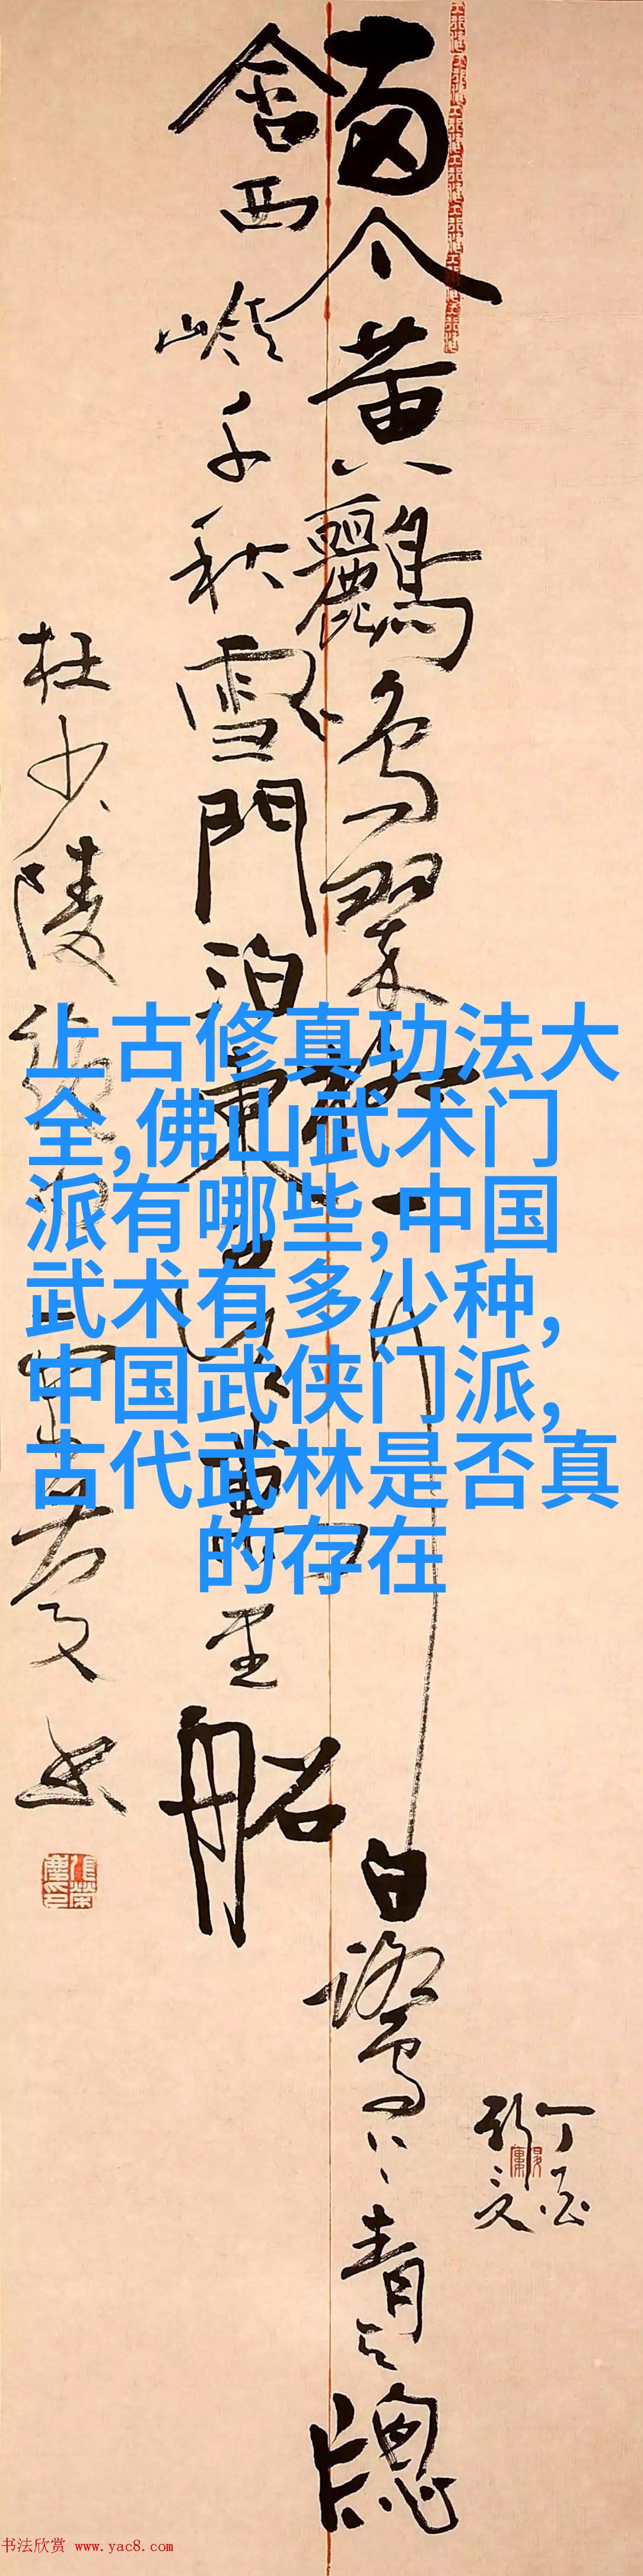 兩个黃鸝鳴翠柳一行白鷺上青天窓
含西嶺千秋雪門泊東吳萬里船
杜少陵絕句
丁酉
上古修真功法大
全,佛山武术门
派有哪些,中国
武术有多少种,
中国武侠门派,
古代武林是否真
的存在
书法欣赏 www.yac8.com